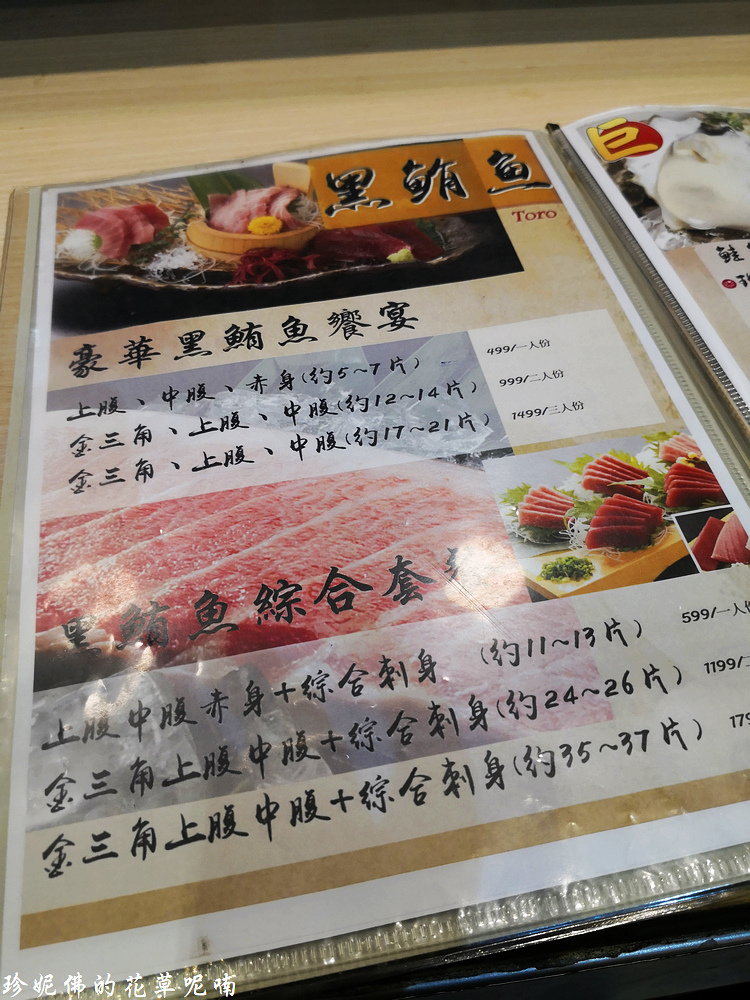 黑鮪魚
Toro
巨
豪華黑鮪魚饗宴
上腹、中腹、赤身(約5~7片) 499/一人份
金三角、上腹、中腹(約12~14片) 999/二人份
金三角、上腹、中腹(約17~21片) 1499/三人份
黑鮪魚綜合套
上腹中腹赤身+綜合刺身 (約11~13片) 599/一人份
金三角上腹中腹+綜合刺身(約24~26片) 1199/
金三角上腹中腹+綜合刺身(約35~37片) 179
鮭
珍妮佛的花草呢喃